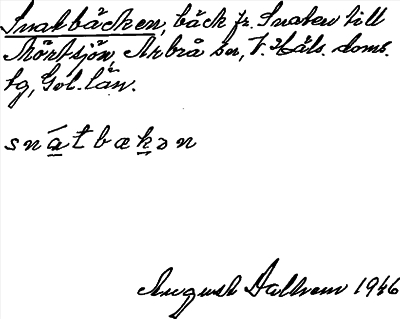 Snatbäcken, bäck fr. Snaten till
Mörtsjön, Arbrå sn, V. Häls. doms.
tg, Gvl. län.
snátbækən
August Dallven 1946